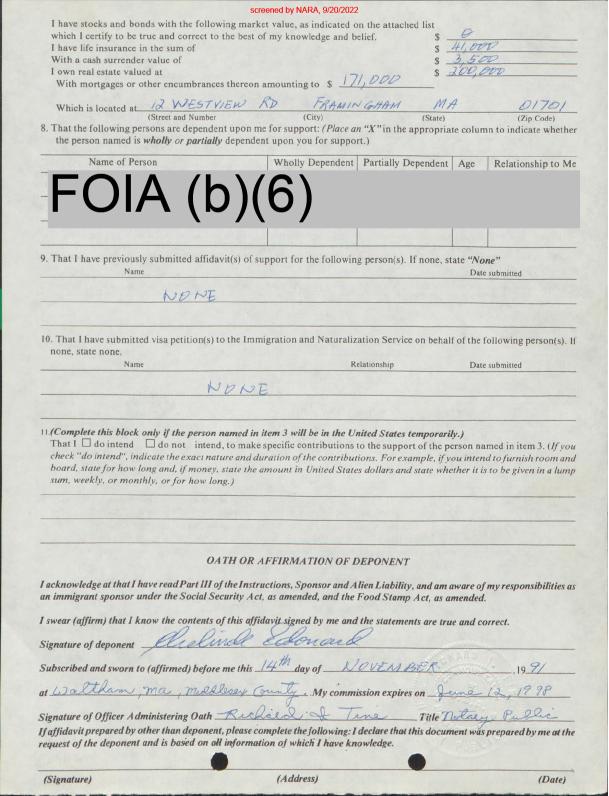 screened by NARA, 9/20/2022
I have stocks and bonds with the following market value, as indicated on the attached list
which I certify to be true and correct to the best of my knowledge and belief. $ 0
I have life insurance in the sum of $ 41,000
With a cash surrender value of $ 3,500
I own real estate valued at $ 200,000
With mortgages or other encumbrances thereon amounting to $ 171,000
Which is located at 12 WESTVIEW RD FRAMINGHAM MA 01701
(Street and Number) (City) (State) (Zip Code)
8. That the following persons are dependent upon me for support: (Place an "X" in the appropriate column to indicate whether
the person named is wholly or partially dependent upon you for support.)
Name of Person Wholly Dependent Partially Dependent Age Relationship to Me
FOIA (b)(6)
9. That I have previously submitted affidavit(s) of support for the following person(s). If none, state "None"
Name Date submitted
NONE
10. That I have submitted visa petition(s) to the Immigration and Naturalization Service on behalf of the following person(s). If
none, state none.
Name Relationship Date submitted
NONE
11. (Complete this block only if the person named in item 3 will be in the United States temporarily.)
That I ☐ do intend ☐ do not intend, to make specific contributions to the support of the person named in item 3. (If you
check "do intend", indicate the exact nature and duration of the contributions. For example, if you intend to furnish room and
board, state for how long and, if money, state the amount in United States dollars and state whether it is to be given in a lump
sum, weekly, or monthly, or for how long.)
OATH OR AFFIRMATION OF DEPONENT
I acknowledge at that I have read Part III of the Instructions, Sponsor and Alien Liability, and am aware of my responsibilities as
an immigrant sponsor under the Social Security Act, as amended, and the Food Stamp Act, as amended.
I swear (affirm) that I know the contents of this affidavit signed by me and the statements are true and correct.
Signature of deponent Edouard
Subscribed and sworn to (affirmed) before me this 14th day of NOVEMBER, 19 91
at Waltham, Ma, Middlesex County. My commission expires on June 12, 1998
Signature of Officer Administering Oath Richard I Tine Title Notary Public
If affidavit prepared by other than deponent, please complete the following: I declare that this document was prepared by me at the
request of the deponent and is based on all information of which I have knowledge.
(Signature) (Address) (Date)